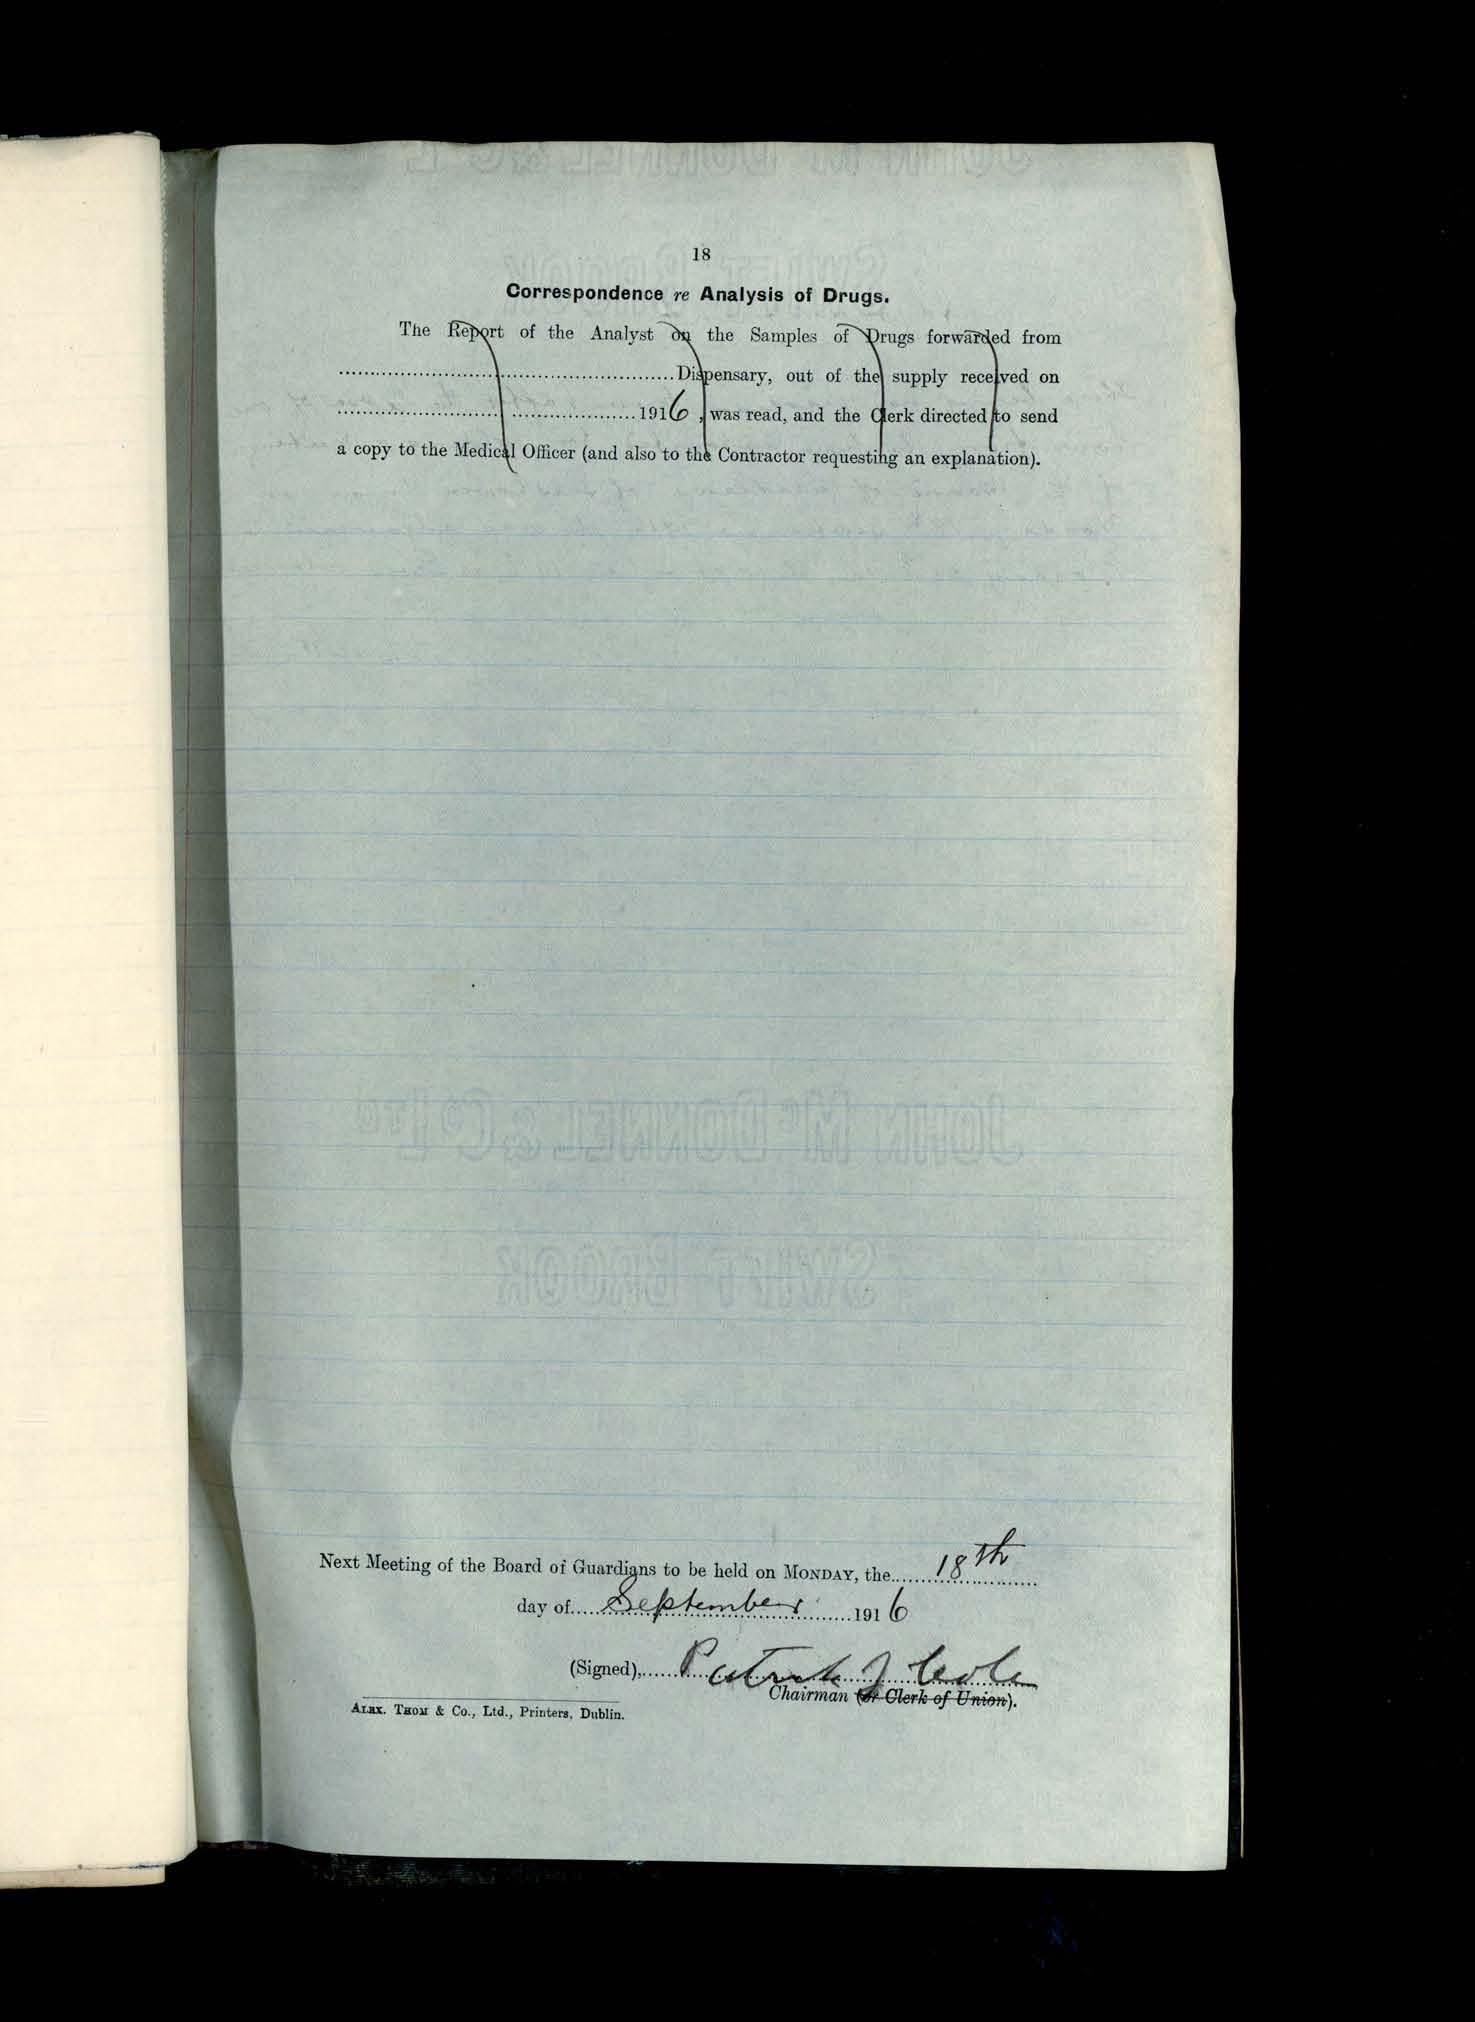 18
Correspondence re Analysis of Drugs.
The Report of the Analyst on the Samples of Drugs forwarded from
........................................Dispensary, out of the supply received on
........................................1916, was read, and the Clerk directed to send
a copy to the Medical Officer (and also to the Contractor requesting an explanation).
JOHN McDONNEL & Co LTD
SWIFT BROOK
Next Meeting of the Board of Guardians to be held on MONDAY, the 18th
day of September 1916
(Signed), Patrick J Cole
Chairman (or Clerk of Union).
ALEX. THOM & Co., Ltd., Printers, Dublin.